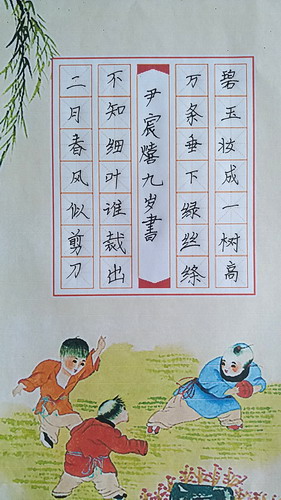 碧玉妆成一树高
万条垂下绿丝绦
尹宸熺九岁書
不知细叶谁裁出
二月春风似剪刀